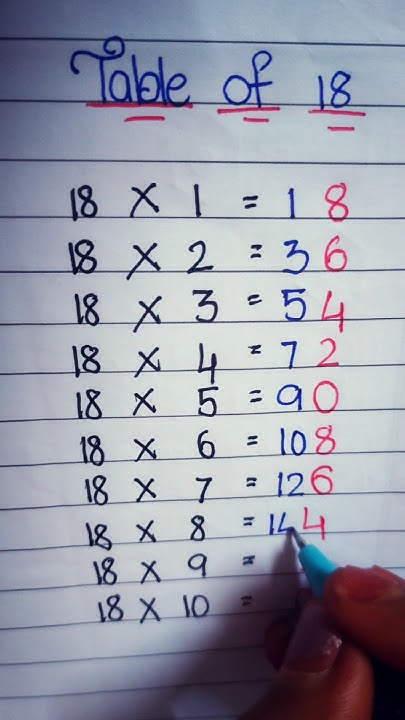 Table of 18
18 × 1 = 18
18 × 2 = 36
18 × 3 = 54
18 × 4 = 72
18 × 5 = 90
18 × 6 = 108
18 × 7 = 126
18 × 8 = 144
18 × 9 =
18 × 10 =